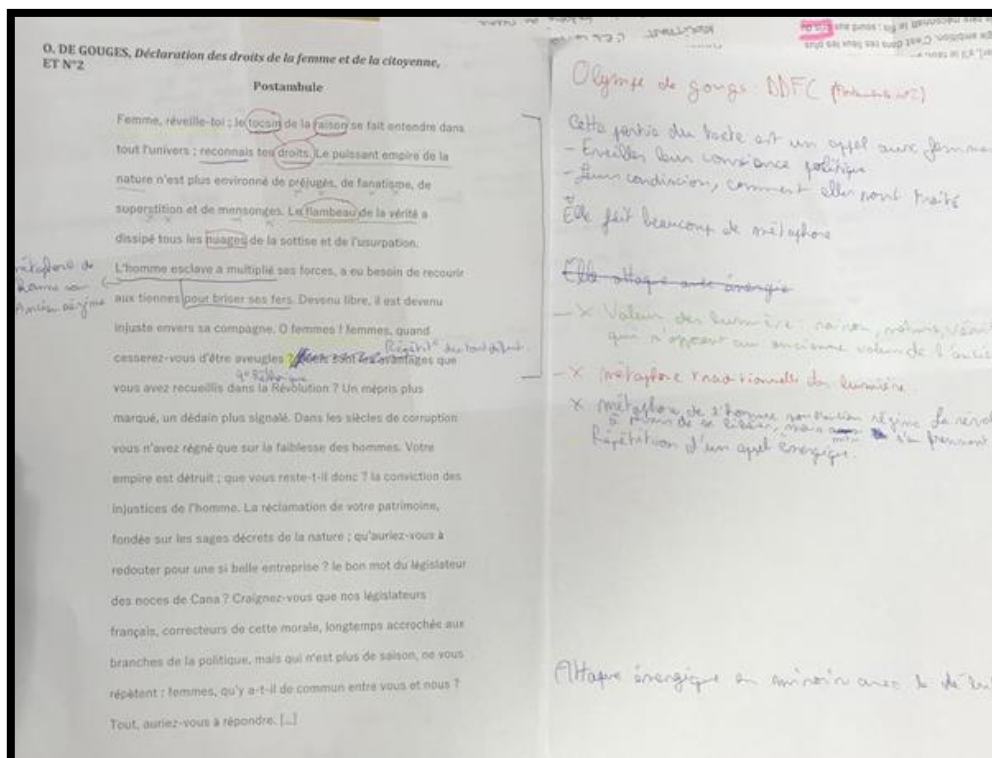 O. DE GOUGES, Déclaration des droits de la femme et de la citoyenne,
ET N°2
Postambule
Femme, réveille-toi ; le tocsin de la raison se fait entendre dans
tout l'univers ; reconnais tes droits. Le puissant empire de la
nature n'est plus environné de préjugés, de fanatisme, de
superstition et de mensonges. Le flambeau de la vérité a
dissipé tous les nuages de la sottise et de l'usurpation.
L'homme esclave a multiplié ses forces, a eu besoin de recourir
aux tiennes pour briser ses fers. Devenu libre, il est devenu
injuste envers sa compagne. O femmes ! femmes, quand
cesserez-vous d'être aveugles ? avantages que
vous avez recueillis dans la Révolution ? Un mépris plus
marqué, un dédain plus signalé. Dans les siècles de corruption
vous n'avez régné que sur la faiblesse des hommes. Votre
empire est détruit ; que vous reste-t-il donc ? la conviction des
injustices de l'homme. La réclamation de votre patrimoine,
fondée sur les sages décrets de la nature ; qu'auriez-vous à
redouter pour une si belle entreprise ? le bon mot du législateur
des noces de Cana ? Craignez-vous que nos législateurs
français, correcteurs de cette morale, longtemps accrochée aux
branches de la politique, mais qui n'est plus de saison, ne vous
répètent : femmes, qu'y a-t-il de commun entre vous et nous ?
Tout, auriez-vous à répondre. [...]
métaphore de
l'homme sous
Ancien régime
Répétit° du tout début
q° Réthorique
Olympe de gougs : DDFC
Cette partie du texte est un appel aux femmes
- Eveiller leur conscience politique
- leur condition, comment elles sont traité
Elle fait beaucoup de métaphore
Elle attaque avec énergie
- X Valeur des lumière : raison, nature, vérité
qui s'opposent aux ancienne valeur de l'ancien
- X métaphore traditionnelle des lumière
X métaphore de l'homme sous ancien régime La révol
Répétition d'un appel énergique.
Attaque énergique en miroir avec le début